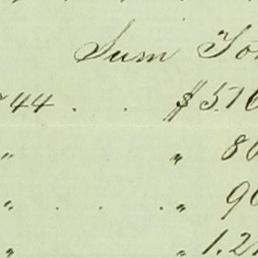 Sum To
44 . . $5.76
" " 80
" . . . " 90
" " 1.2